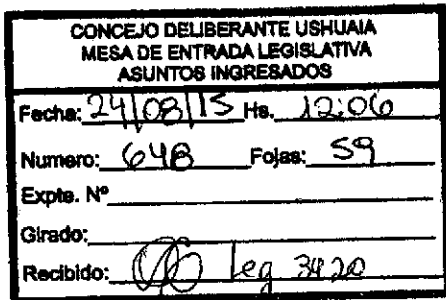 CONCEJO DELIBERANTE USHUAIA
MESA DE ENTRADA LEGISLATIVA
ASUNTOS INGRESADOS
Fecha: 24/08/15 Hs. 12:06
Numero: 648 Fojas: 59
Expte. Nº
Girado:
Recibido: Leg 3420